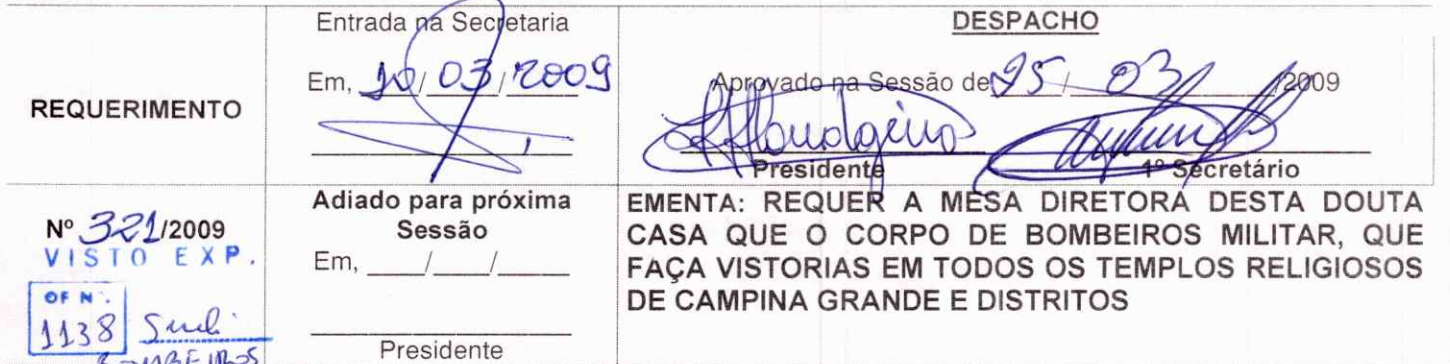 REQUERIMENTO
Entrada na Secretaria
Em, 10/03/2009
DESPACHO
Aprovado na Sessão de 25/03/2009
Presidente
1º Secretário
Nº 321/2009
VISTO EXP.
OF Nº.
1138
BOMBEIROS
Adiado para próxima
Sessão
Em, ____/____/____
Presidente
EMENTA: REQUER A MESA DIRETORA DESTA DOUTA
CASA QUE O CORPO DE BOMBEIROS MILITAR, QUE
FAÇA VISTORIAS EM TODOS OS TEMPLOS RELIGIOSOS
DE CAMPINA GRANDE E DISTRITOS